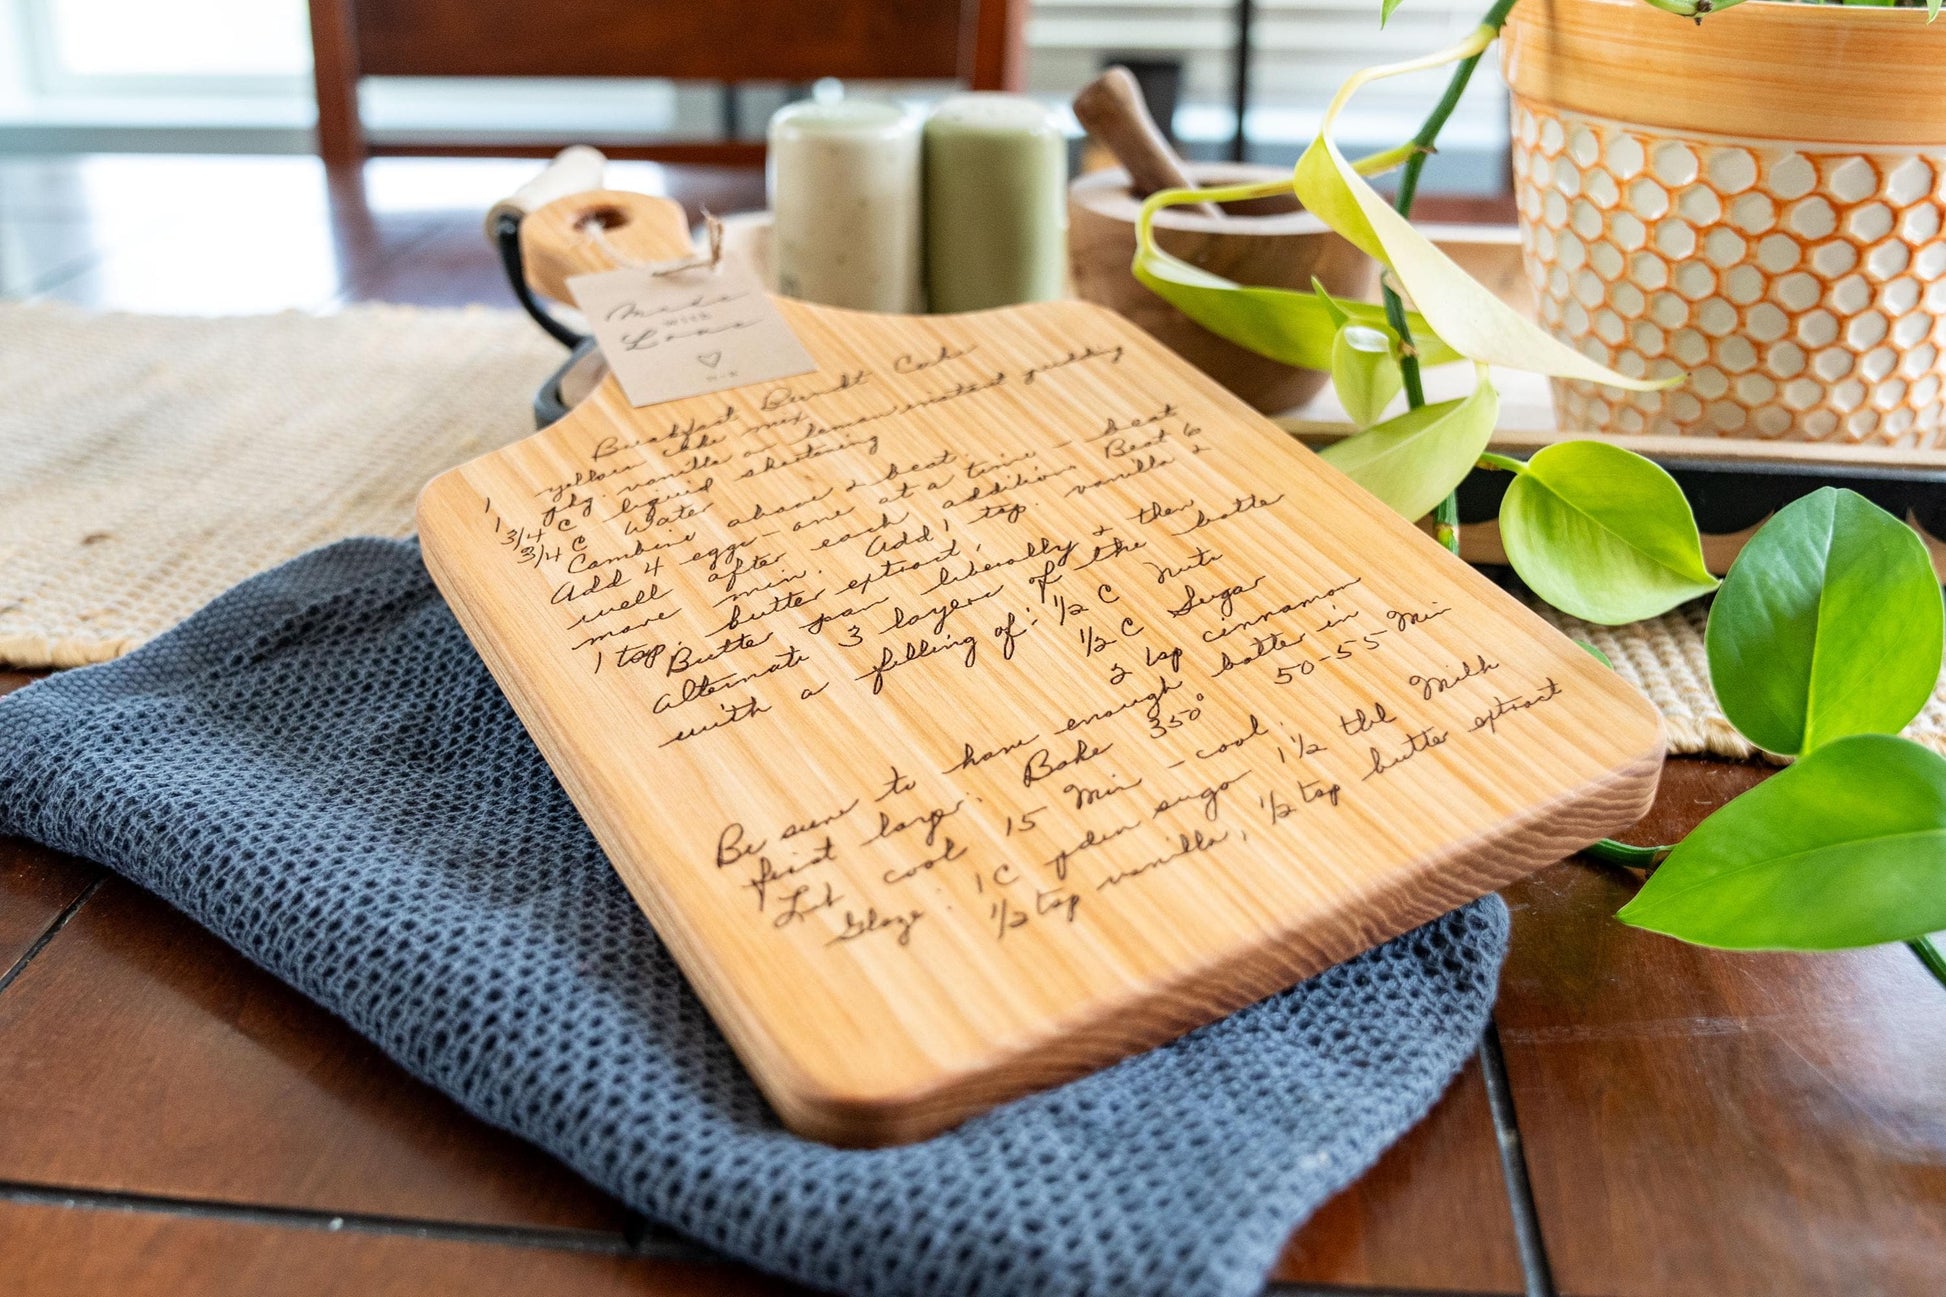 Made
with
Love
Breakfast Bundt Cake
1 yellow cake mix
1 pkg. vanilla or lemon instant pudding
3/4 C liquid shortening
3/4 C Water
Combine above & beat.
Add 4 eggs - one at a time - beat
well after each addition. Beat 6
more min. Add 1 tsp. vanilla &
1 tsp. butter extract.
Butter pan liberally & then
alternate 3 layers of the batter
with a filling of: 1/2 C Nuts
1/2 C Sugar
2 tsp cinnamon
Be sure to have enough batter in
first layer. Bake 350° 50-55 Min
Let cool 15 Min - cool.
Glaze: 1 C pden sugar 1 1/2 tbl Milk
1/2 tsp vanilla, 1/2 tsp butter extract